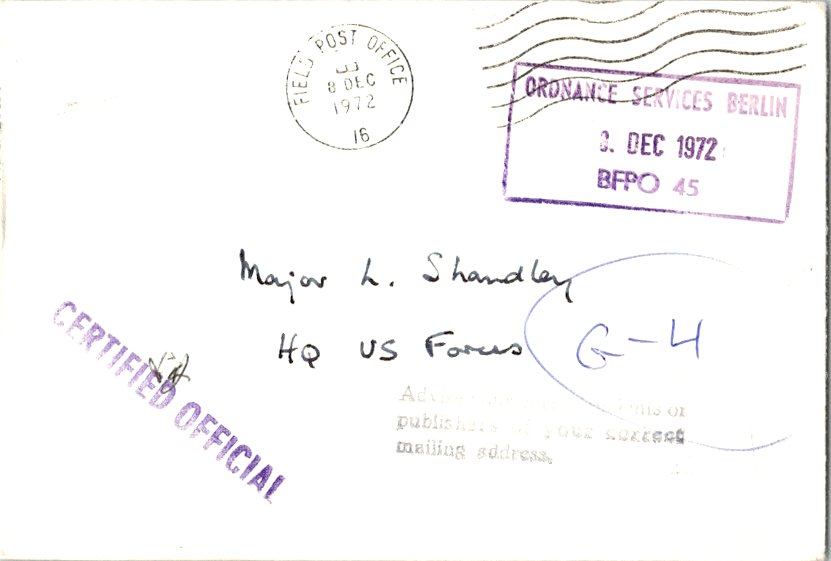 FIELD POST OFFICE
8 DEC
1972
16
ORDNANCE SERVICES BERLIN
8. DEC 1972
BFPO 45
Major L. Shandley
HQ US Forces
G-4
CERTIFIED OFFICIAL
or
publishers of your correct
mailing address.